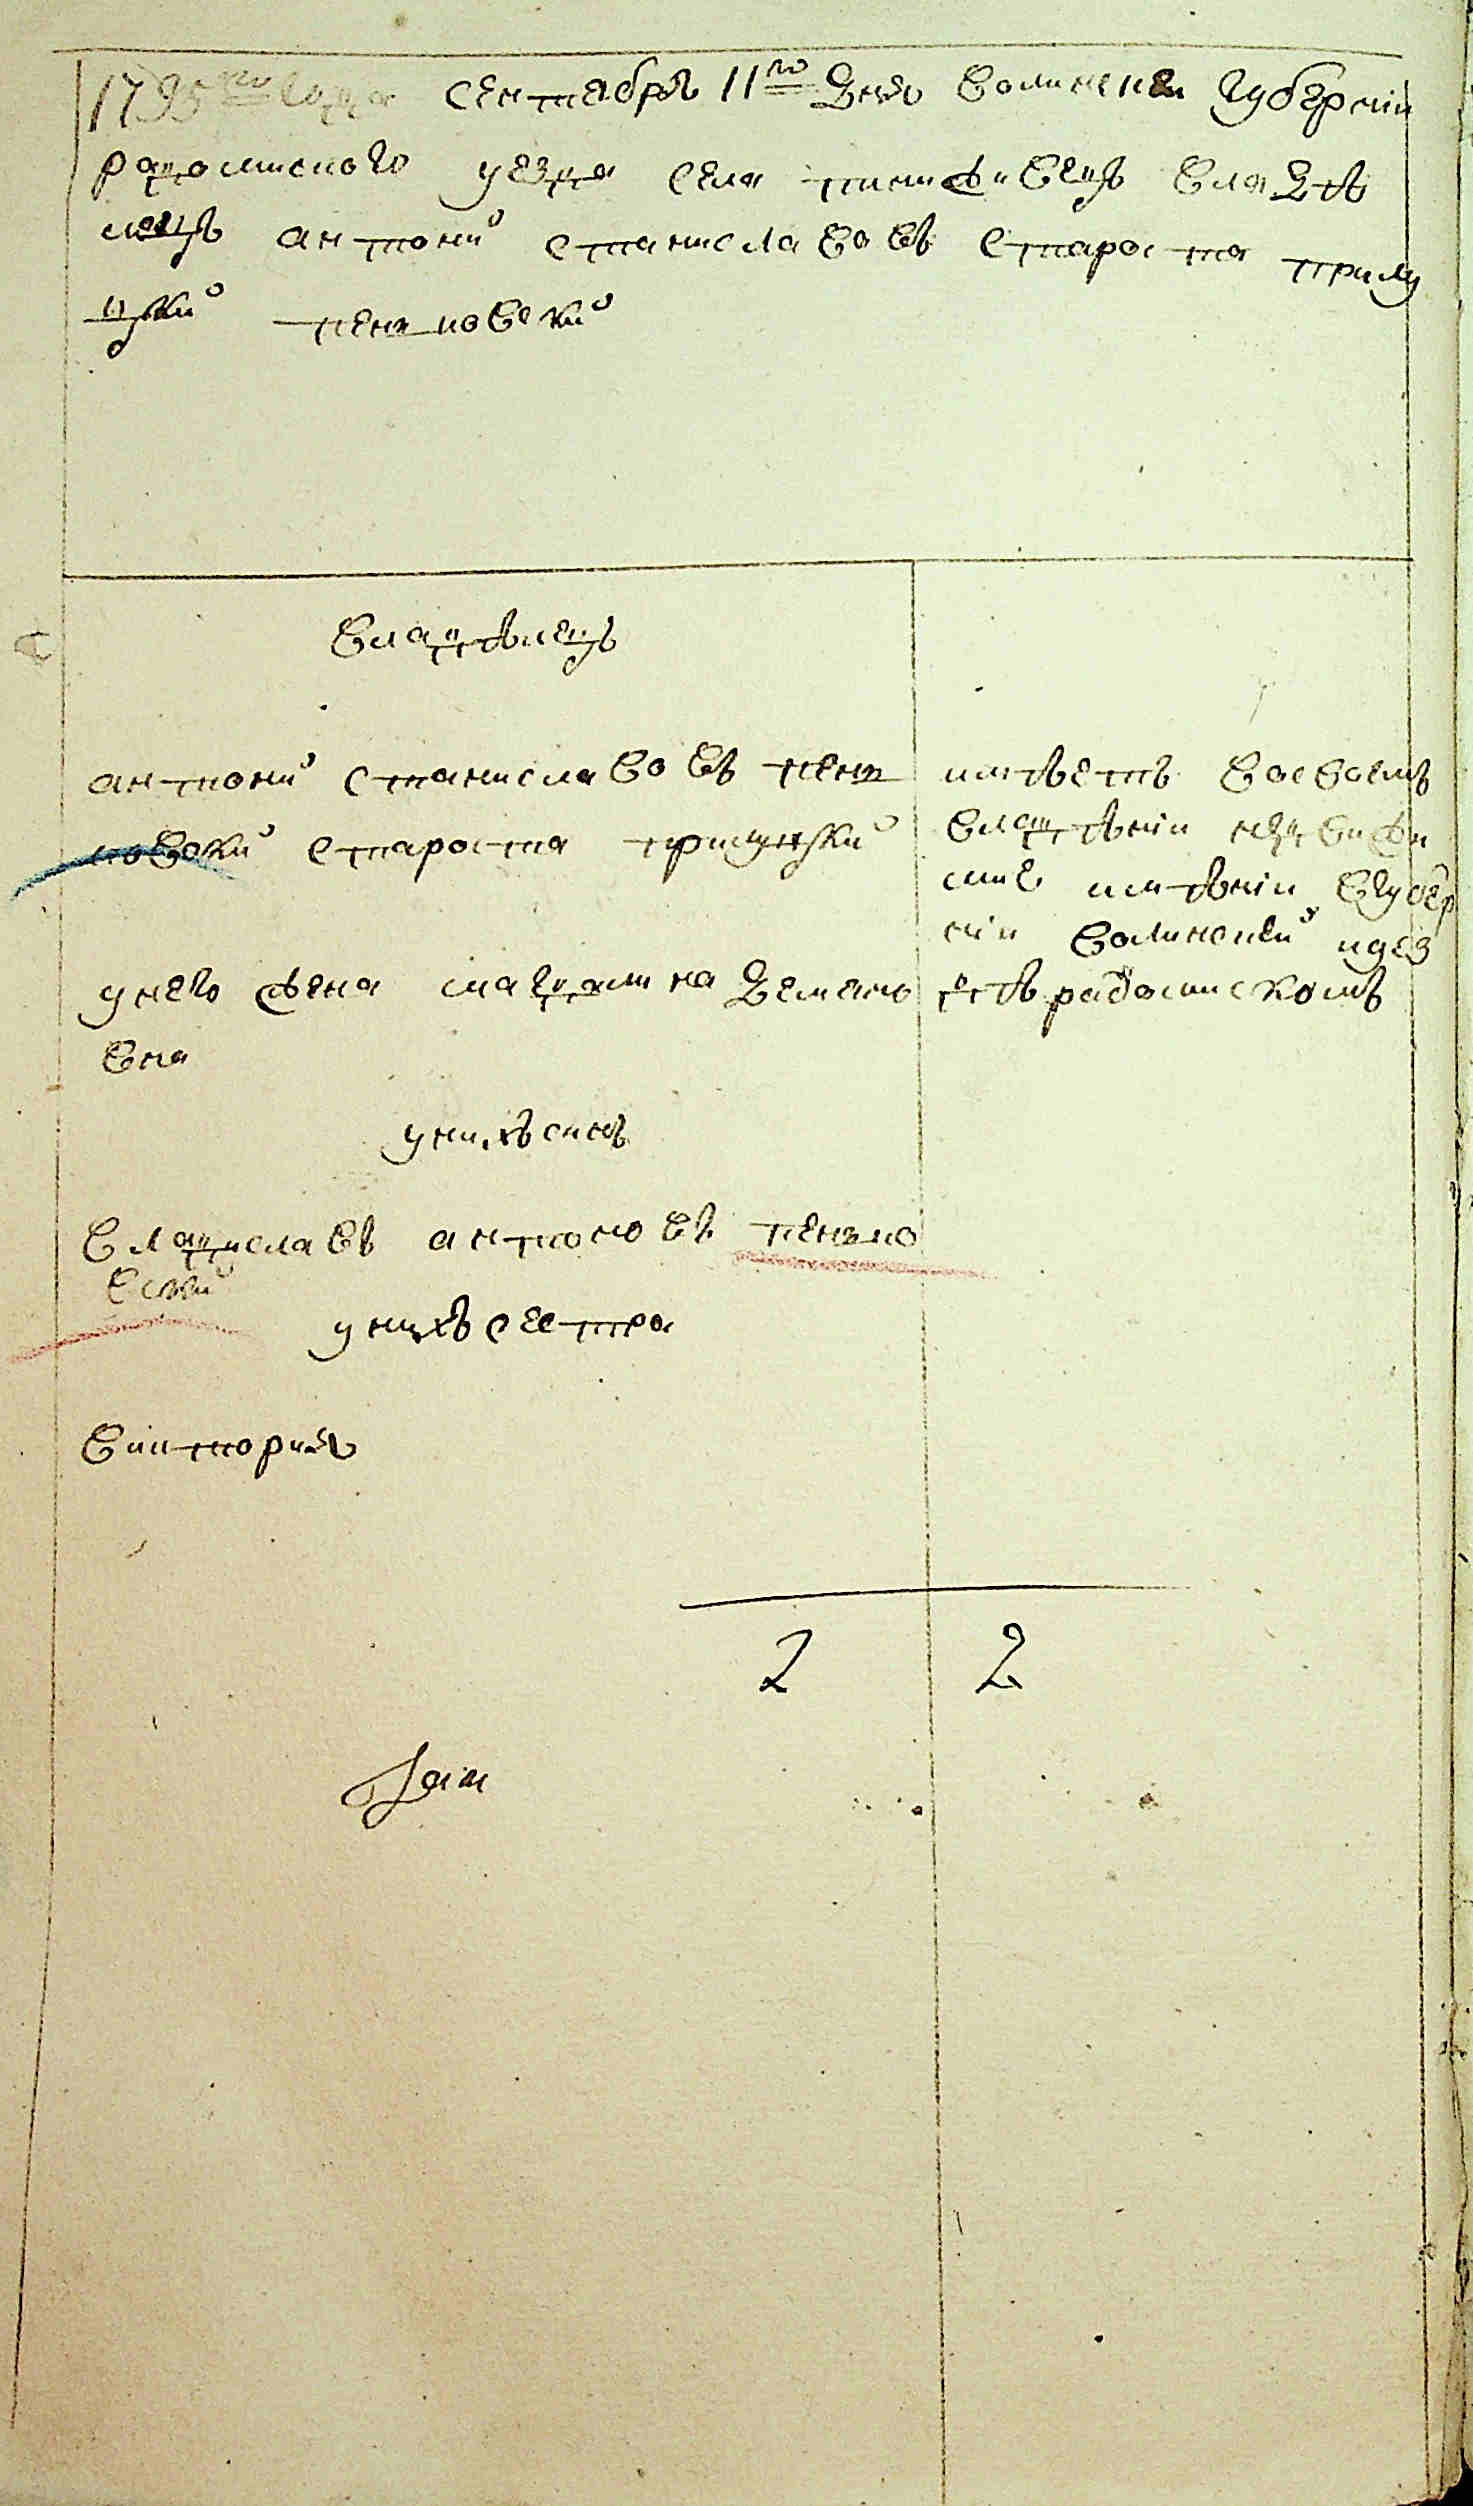 1795го года сентебръ 11го дня волинскеи губернии
радомиского уезда села владѣ
лецъ антони станиславовъ староста трилу
цзкий пеньковский
владѣлецъ
антоний станиславовъ пень
ковский староста трилуцзкий
у него жена магдалина
вна
у нихъ синъ
владиславъ антоновъ пенько
вский
у нихъ сестра
виктория
имѣетъ восвоемъ
владѣнии недвижи
мие имѣнии вгубер
нии волинскей иуез
дѣ радомискомъ
2 2